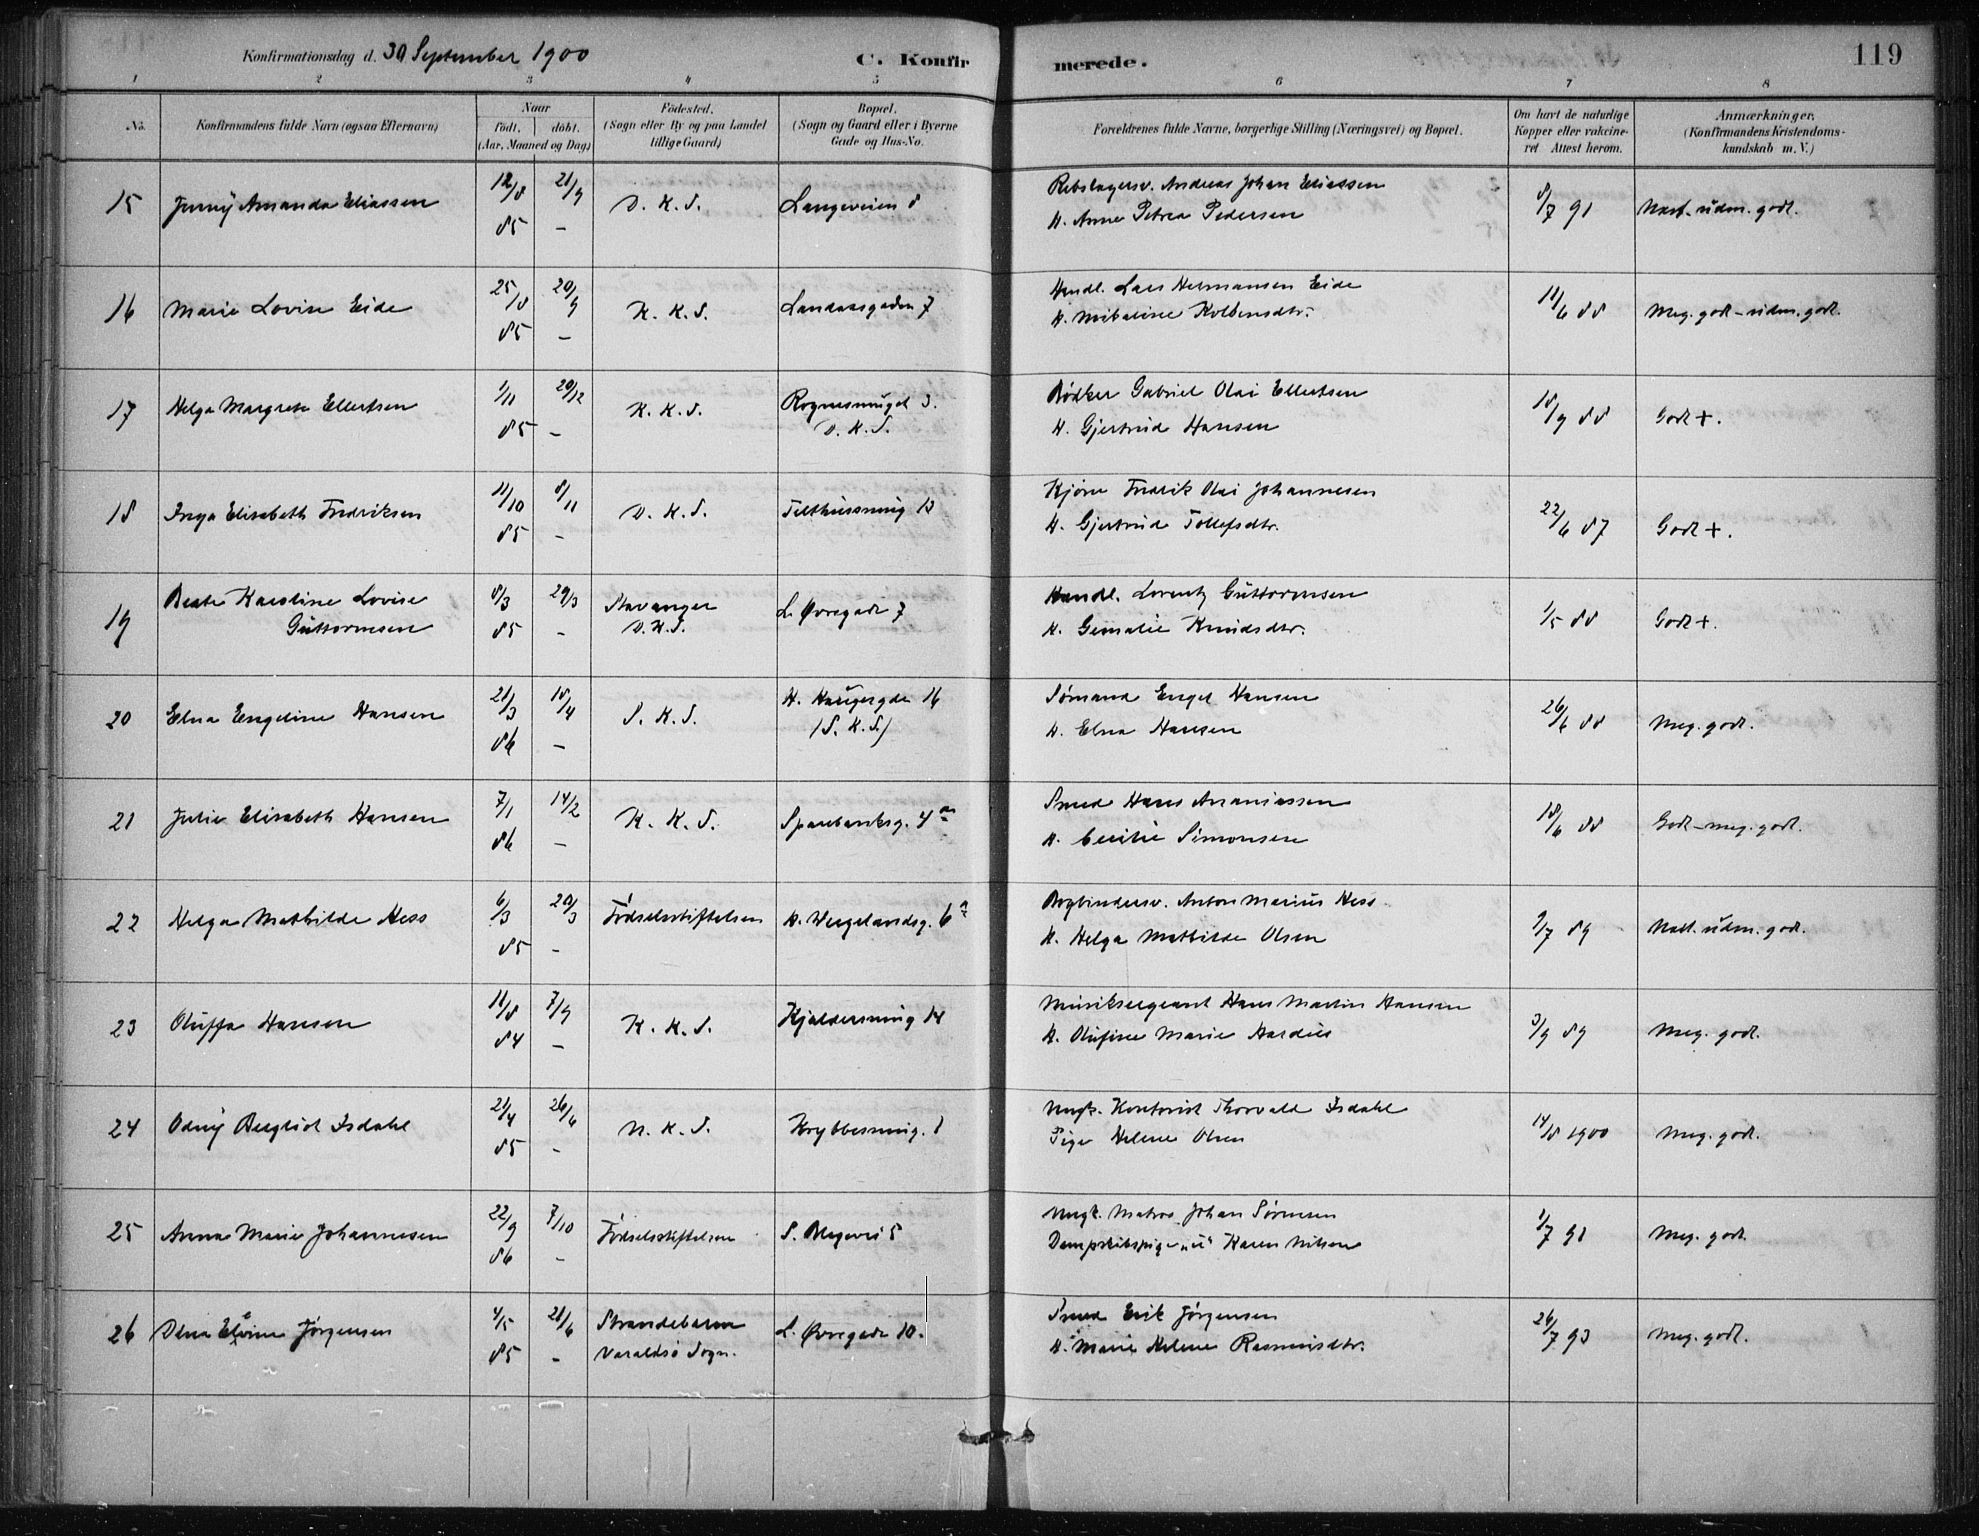 Konfirmationsdag d. 30 September 1900
C. Konfirmerede.
119
1 2 3 4 5 6 7 8
No.
Konfirmandens fulde Navn (ogsaa Efternavn)
Naar
født. døbt.
(Aar, Maaned og Dag)
Fødested.
(Sogn eller By og paa Landet
tillige Gaard)
Bopæl.
(Sogn og Gaard eller i Byerne
Gade og Hus-No.
Forældrenes fulde Navne, borgerlige Stilling (Næringsvei) og Bopæl.
Om havt de naturlige
Kopper eller vakcine-
ret Attest herom.
Anmærkninger.
(Konfirmandens Kristendoms-
kundskab m. V.)
15 Jenny Amanda Eliassen 12/8 85 21/9 — D. K. S. Langeveien 8
Rebslagersv. Andreas Johan Eliassen
H. Anne Petrea Pedersen
8/7 91 Næst. udm. godt.
16 Marie Lovise Eide 25/8 85 20/9 — K. K. S. Landaasgaden 7
Handl. Lars Hermansen Eide
H. Mikaline Kolbensdtr.
11/6 88 Meg. godt – udm. godt.
17 Helga Margrete Ellertsen 1/11 85 20/12 — K. K. S. Rognesmuget 3. D. K. S.
Bødker Gabriel Olai Ellertsen
H. Gjertrud Hansen
18/9 88 Godt +.
18 Inga Elisabeth Fredriksen 11/10 85 8/11 — D. K. S. Telthussmug 13
Kjører Fredrik Olai Johannesen
H. Gjertrud Tollefsdtr.
22/6 87 Godt +.
19 Beate Karoline Lovise
Guttormsen 8/3 85 29/3 — Stavanger D. K. S. L. Øvregade 7
Handl. Lorentz Guttormsen
H. Gemalie Knudsdtr.
1/5 88 Godt +.
20 Elna Engeline Hansen 21/3 86 18/4 — S. K. S. H. Haugesgde 16 (S. K. S.)
Sømand Engel Hansen
H. Elna Hansen
26/6 88 Meg. godt.
21 Julie Elisabeth Hansen 7/1 86 14/2 — K. K. S. Sparebanksg. 4 a
Smed Hans Ananiassen
H. Cecilie Simonsen
18/6 88 Godt – meg. godt.
22 Helga Mathilde Hess 6/3 85 20/3 — Fødselsstiftelsen H. Wergelandsg. 6 a
Bogbindersv. Anton Marius Hess
H. Helga Mathilde Olsen
2/7 89 Næst. udm. godt.
23 Oluffa Hansen 11/8 84 7/9 — K. K. S. Kjeldersmug 14
Musiksergeant Hans Martin Hansen
H. Olufine Marie
3/9 89 Meg. godt.
24 Odny Bergliot Isdahl 21/4 85 26/6 — N. K. S. Krybbesmug. 1
Ungk. Kontorist Thorvald Isdahl
Pige Helene Olsen
14/8 1900 Meg. godt.
25 Anna Marie Johannesen 22/9 86 7/10 — Fødselsstiftelsen S. Blegevei 5
Ungk. Matros Johan Sørensen
Dampskibspige „u“ Karen Nilsen
1/7 91 Meg. godt.
26 Olna Elvine Jørgensen 4/5 85 21/6 — Strandebarm Varaldsø Sogn. L. Øvregade 10.
Smed Erik Jørgensen
H. Marie Helene Rasmusdtr.
26/7 93 Meg. godt.